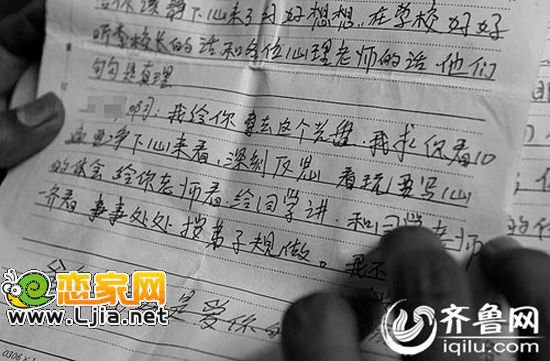 你该静下心来了好好想想.在学校好好
听李校长的话和各位心理老师的话.他们
句句是真理
啊:我给你寄去这个光盘.我求你看10
遍.静下心来看,深刻反思.看玩要写心
的体会.给你老师看.给同学讲.和同学老师
一齐看 事事处处按弟子规做。
是爱你的
恋家网
www.Ljia.net
齐鲁网
iqilu.com
0306